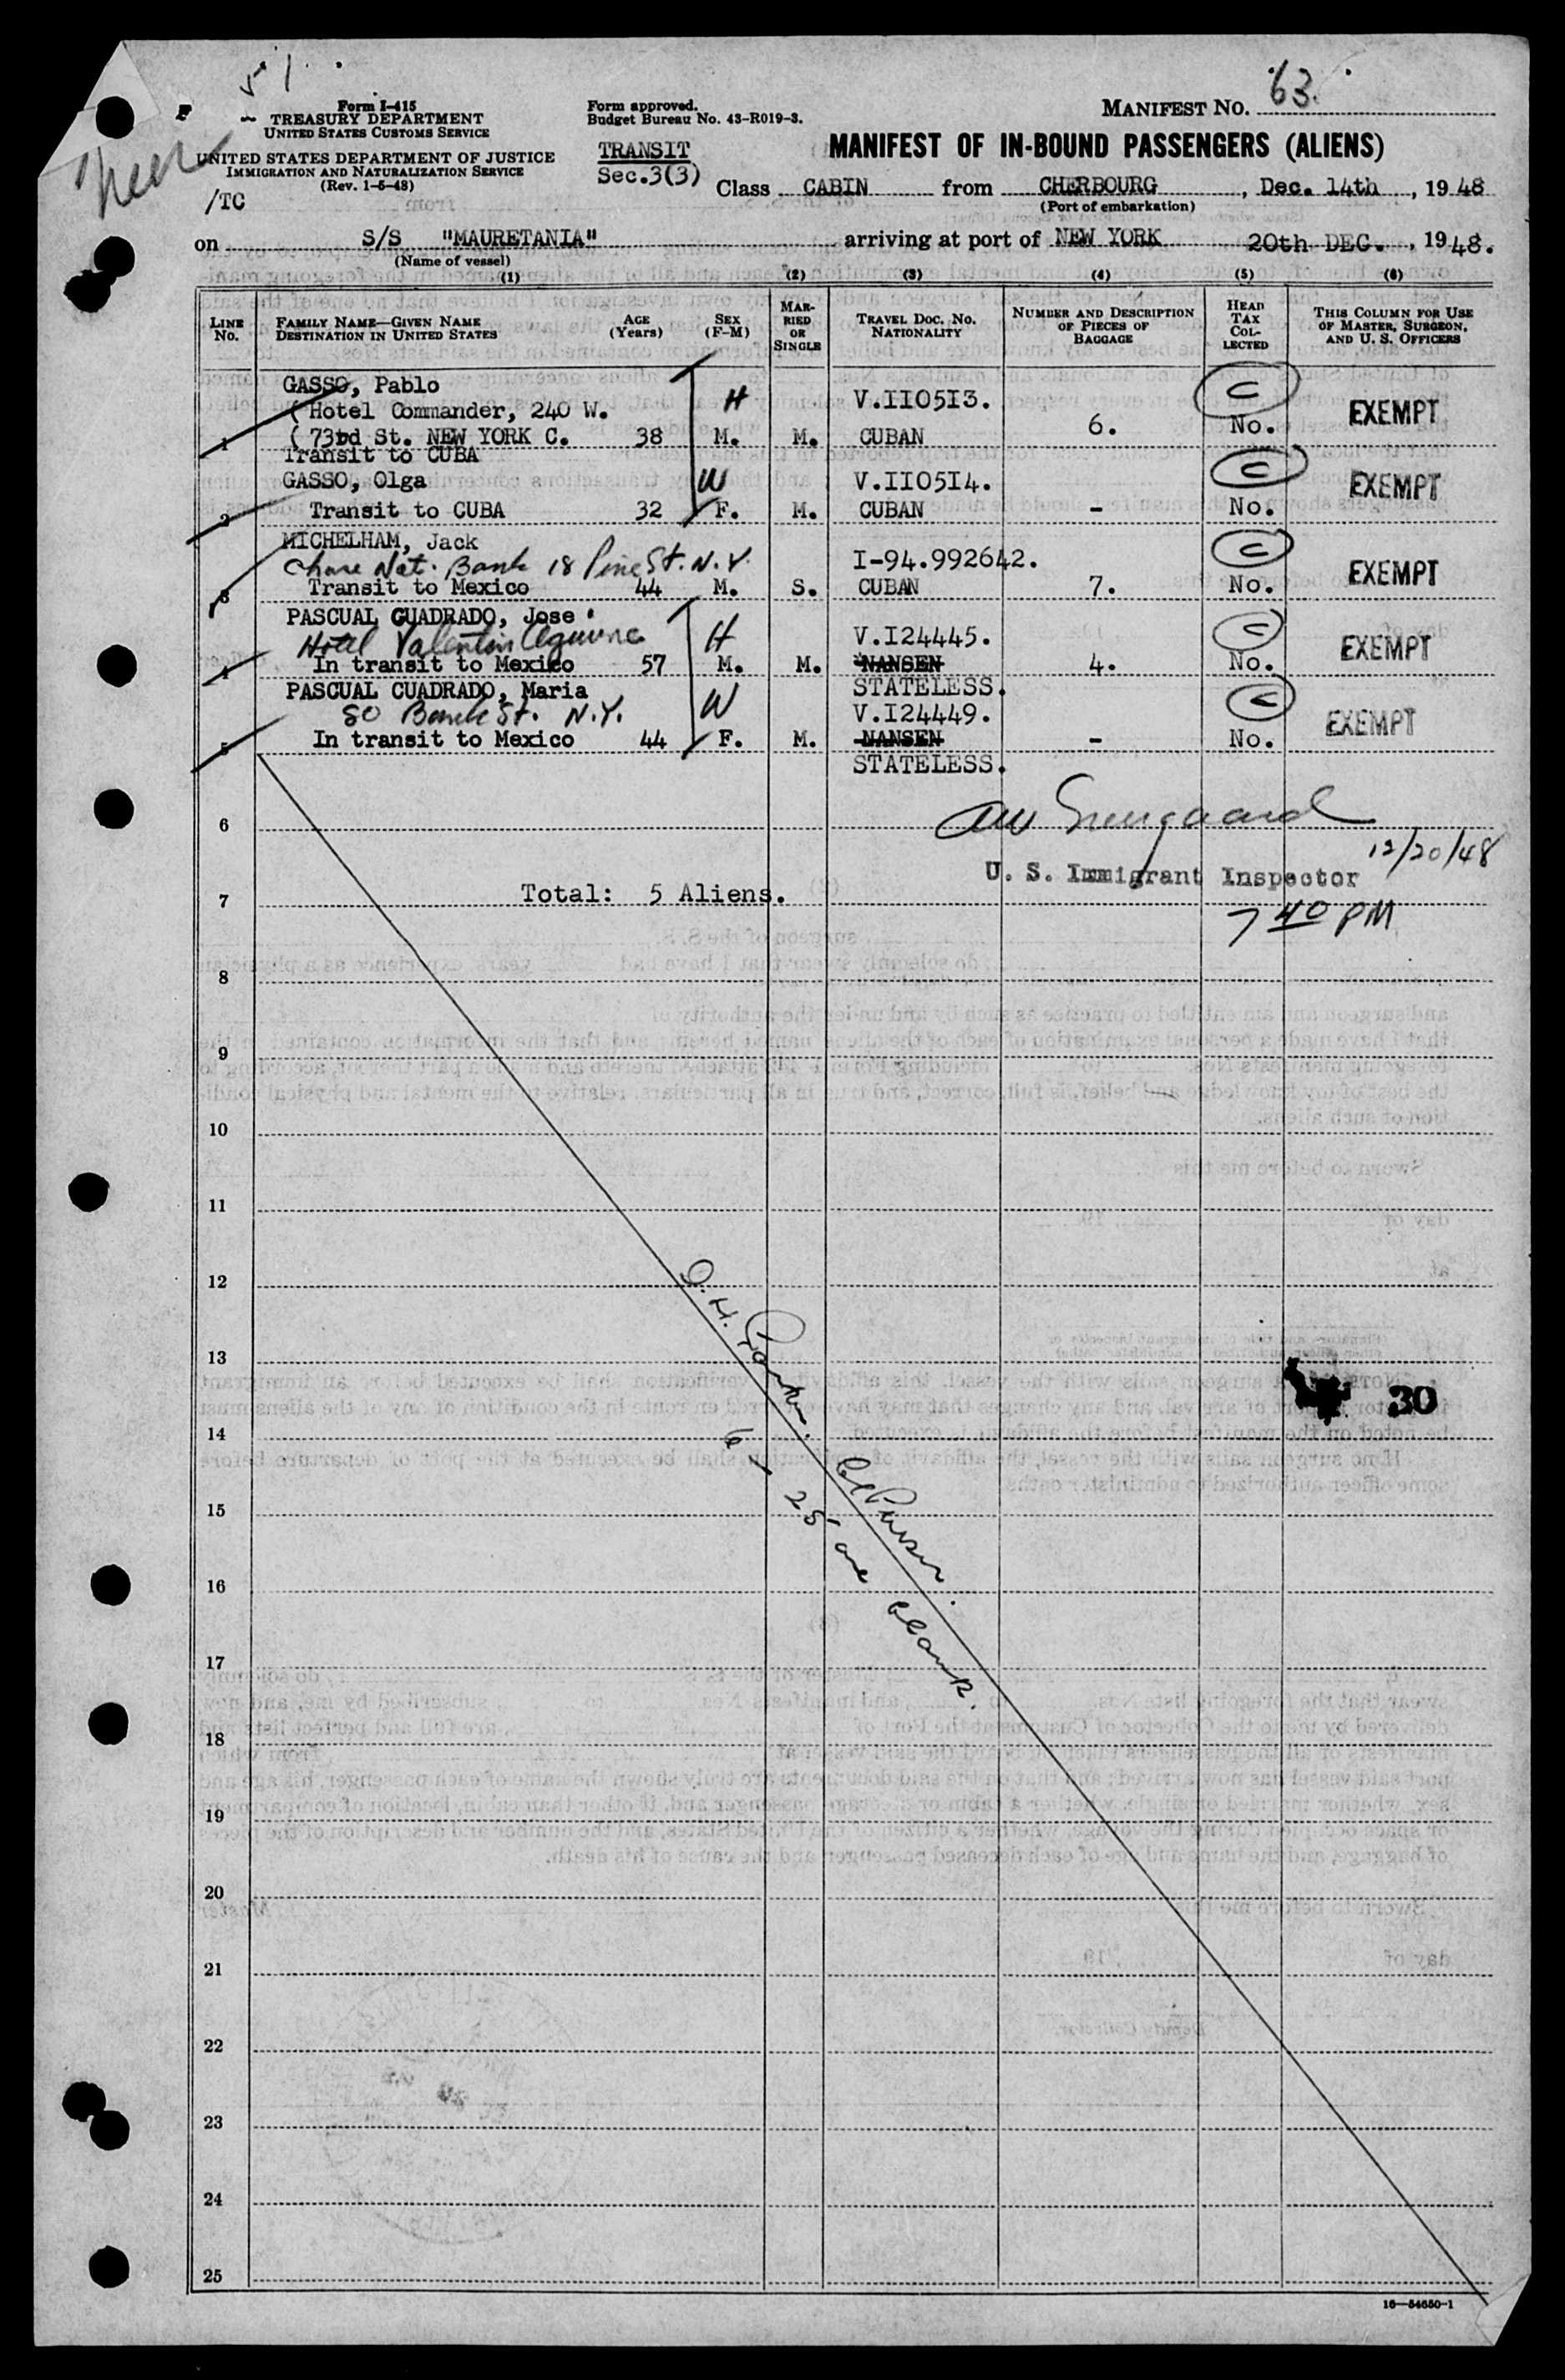 51
63.
Form I-415
TREASURY DEPARTMENT
UNITED STATES CUSTOMS SERVICE
UNITED STATES DEPARTMENT OF JUSTICE
IMMIGRATION AND NATURALIZATION SERVICE
(Rev. 1-5-48)
/TC
Form approved.
Budget Bureau No. 43-R019-3.
TRANSIT
Sec.3(3)
MANIFEST NO.
MANIFEST OF IN-BOUND PASSENGERS (ALIENS)
Class CABIN from CHERBOURG, Dec. 14th, 1948
(Port of embarkation)
on S/S "MAURETANIA" arriving at port of NEW YORK 20th DEC., 1948.
(Name of vessel)
(1) (2) (3) (4) (5) (6)
LINE No. FAMILY NAME—GIVEN NAME DESTINATION IN UNITED STATES AGE (Years) SEX (F-M) MARRIED OR SINGLE TRAVEL DOC. NO. NATIONALITY NUMBER AND DESCRIPTION OF PIECES OF BAGGAGE HEAD TAX COLLECTED THIS COLUMN FOR USE OF MASTER, SURGEON, AND U. S. OFFICERS
GASSO, Pablo
(Hotel Commander, 240 W. H V.II05I3. C EXEMPT
1 (73rd St. NEW YORK C. 38 M. M. CUBAN 6. No.
Transit to CUBA
GASSO, Olga W V.II05I4. C EXEMPT
2 Transit to CUBA 32 F. M. CUBAN - No.
MICHELHAM, Jack
Chase Nat. Bank 18 Pine St. N.Y. I-94.992642. C EXEMPT
3 Transit to Mexico 44 M. S. CUBAN 7. No.
PASCUAL CUADRADO, Jose
Hotel Valentin Aguirre H V.I24445. C EXEMPT
4 In transit to Mexico 57 M. M. NANSEN 4. No.
STATELESS.
PASCUAL CUADRADO, Maria
80 Bank St. N.Y. W V.I24449. C EXEMPT
5 In transit to Mexico 44 F. M. NANSEN - No.
STATELESS.
6
12/20/48
U. S. Immigrant Inspector
7 Total: 5 Aliens.
7 40 PM
8
9
10
11
12
13
30
14
15
6 - 25 are blank.
16
17
18
19
20
21
22
23
24
25
16—54650-1